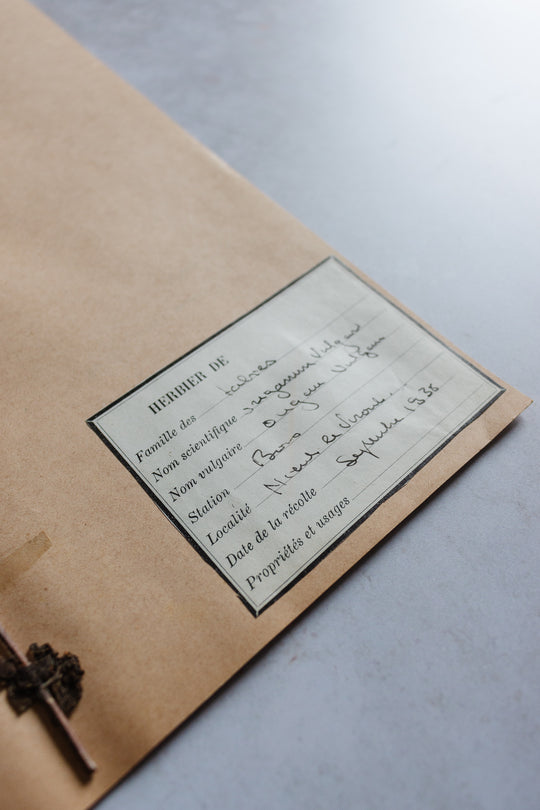 HERBIER DE
Famille des
Nom scientifique origanum Vulgare
Nom vulgaire Origan Vulgaire
Station Bois
Localité
Date de la récolte Septembre 1936
Propriétés et usages